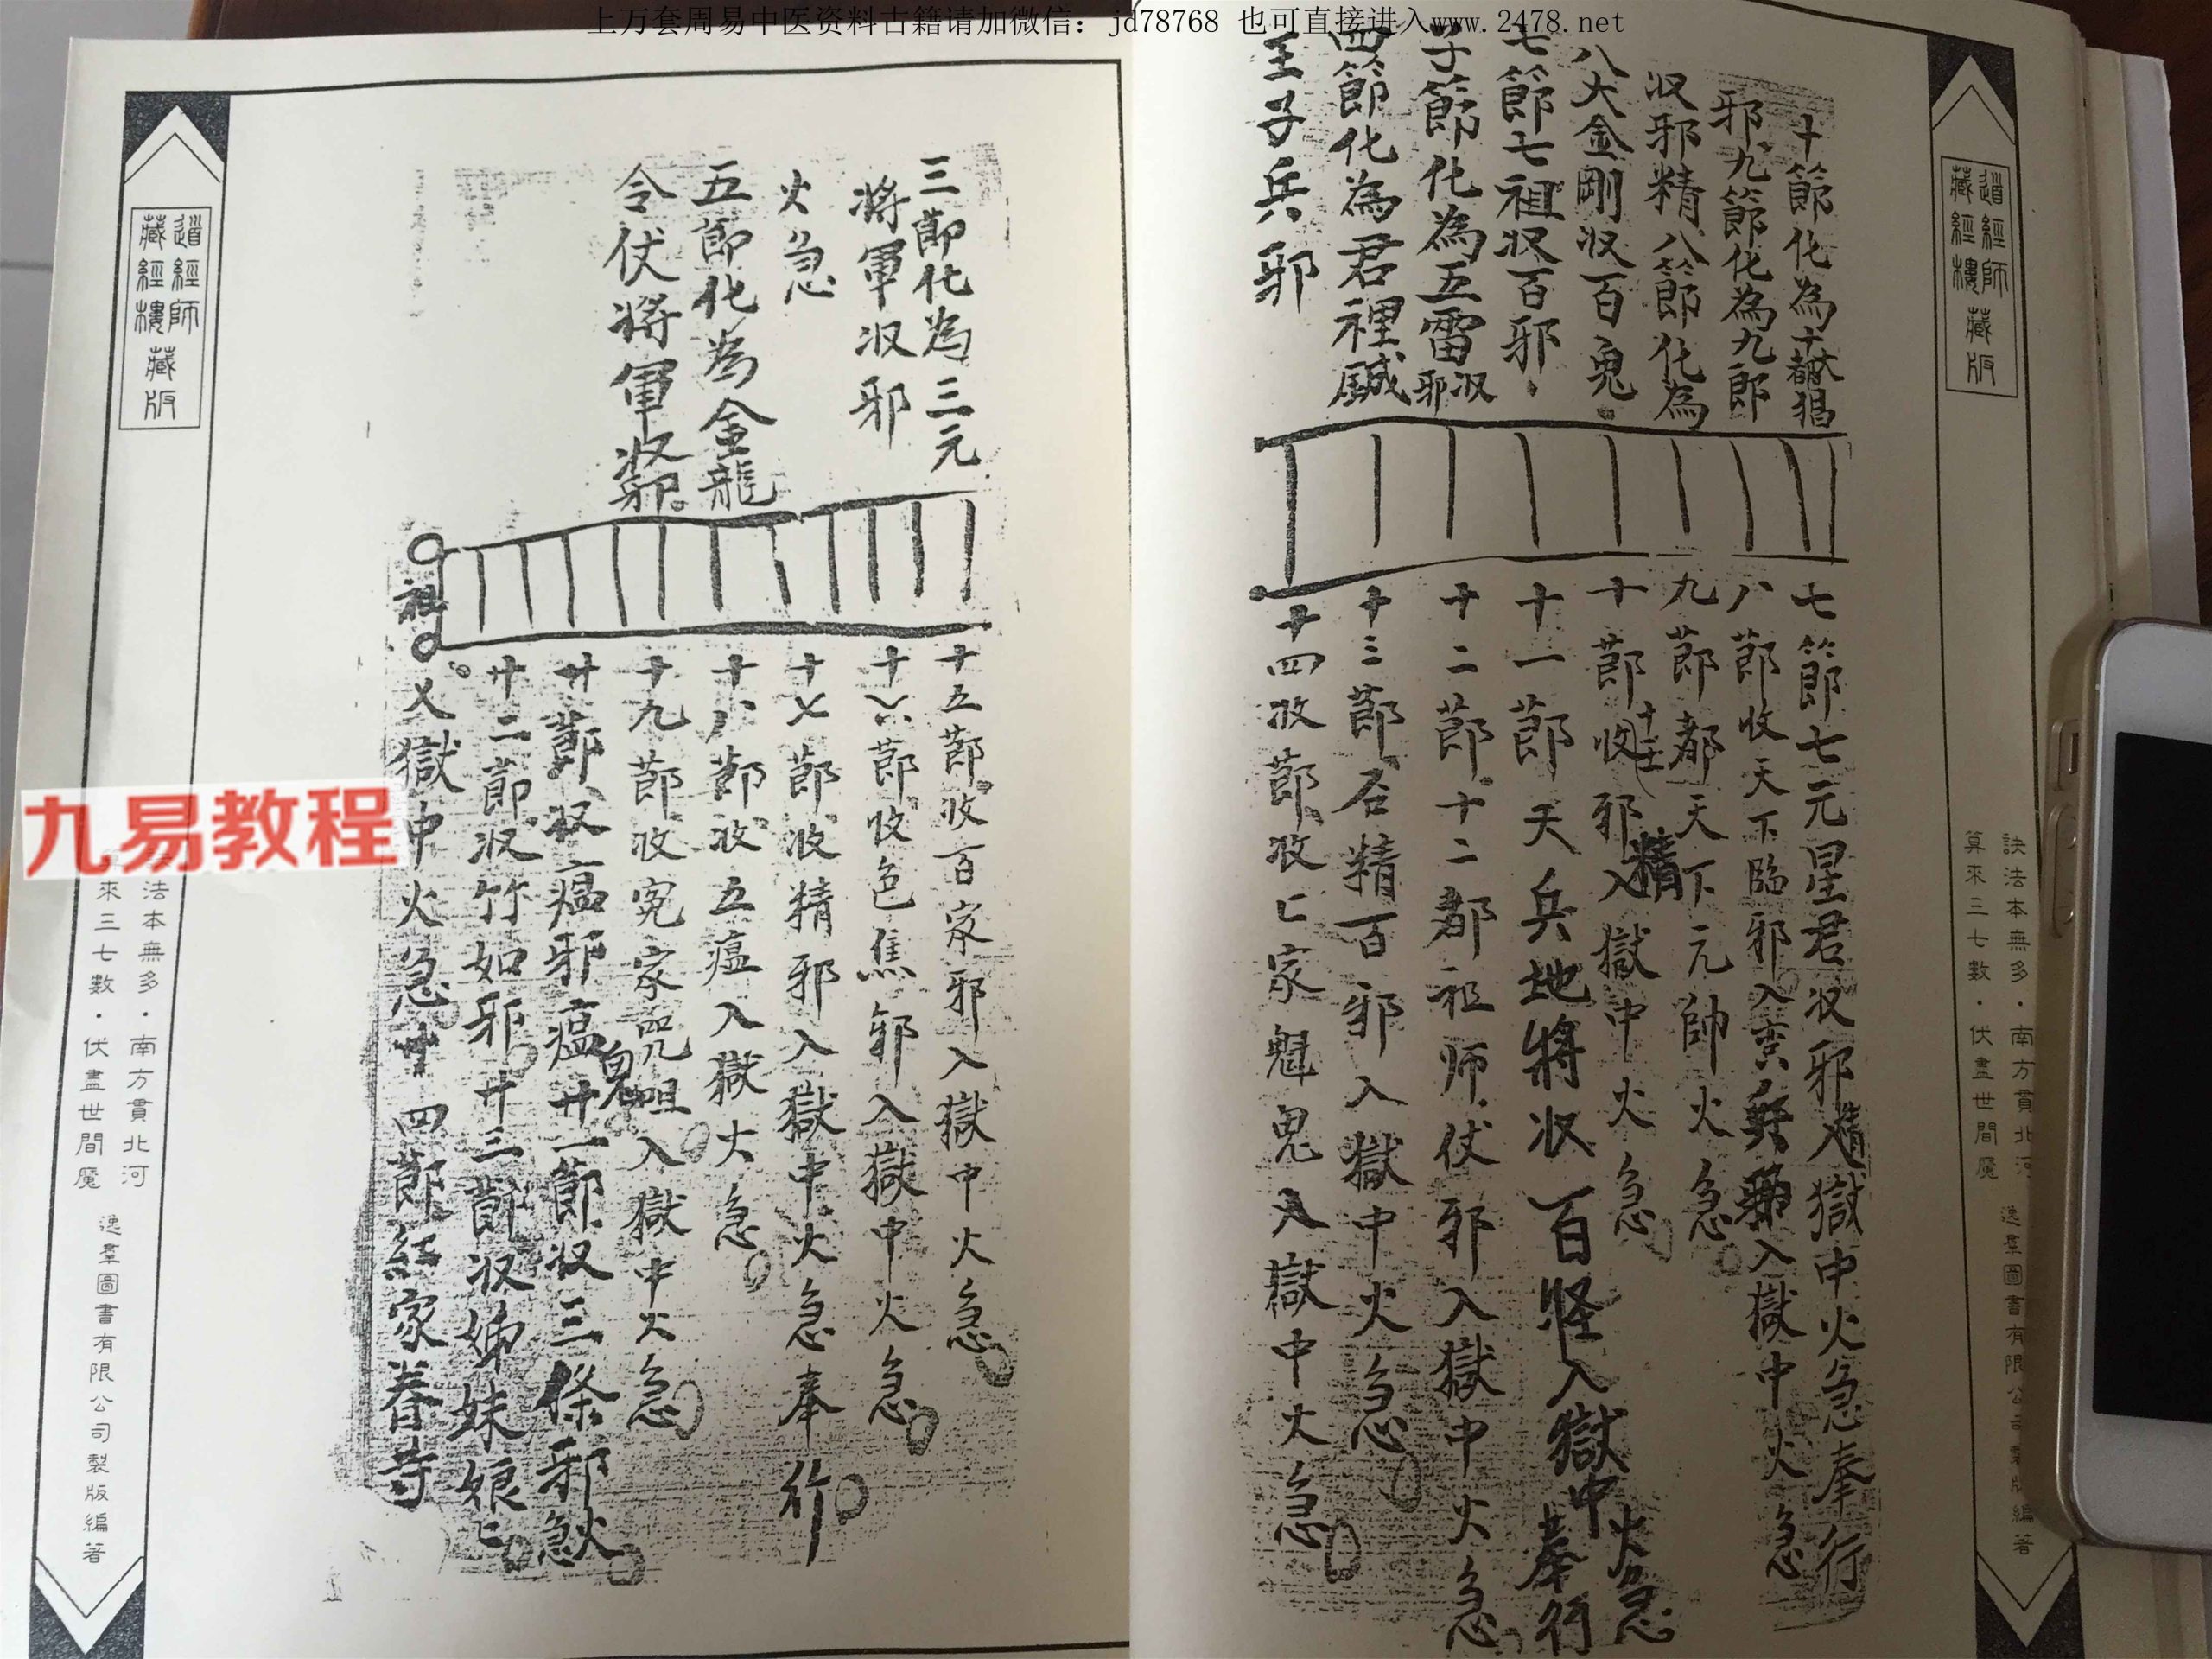 上万套周易中医资料古籍请加微信：jd78768 也可直接进入www.2478.net
道經師
藏經樓
藏版
十節化為十
邪九節化為九郎
収邪精八節化為
八大金剛収百鬼
七節七祖収百邪
子節化為五雷収邪
四節化為君裡
王子兵邪
七節七元星君収邪精入獄中火急奉行
八節收天下臨邪入獄中火急
九節都天下元帥火急
十節收邪精入獄中火急
十一節天兵地將収百怪入獄中火急奉行
十二節十二都祖师仗邪入獄中火急
十三節石精百邪入獄中火急
十四收節收匕家魁鬼入獄中火急
訣法本無多·南方貫北河
算來三七數·伏盡世間魔
逸羣圖書有限公司製版編著
三節化為三元
將軍収邪
火急
五節化為金龍
令仗將軍収邪
祖
十五節收百家邪入獄中火急
十六節收色焦邪入獄中火急
十七節收精邪入獄中火急奉行
十八節收五瘟入獄火急
十九節收冤家咒咀入獄中火急
廿節収瘟邪瘟廿一節収三條邪火急
廿二節収竹如邪廿三節収姊妹娘匕
入獄中火急廿四節紅家春寺
道經師
藏經樓
藏版
九易教程
法本無多·南方貫北河
來三七數·伏盡世間魔
逸羣圖書有限公司製版編著